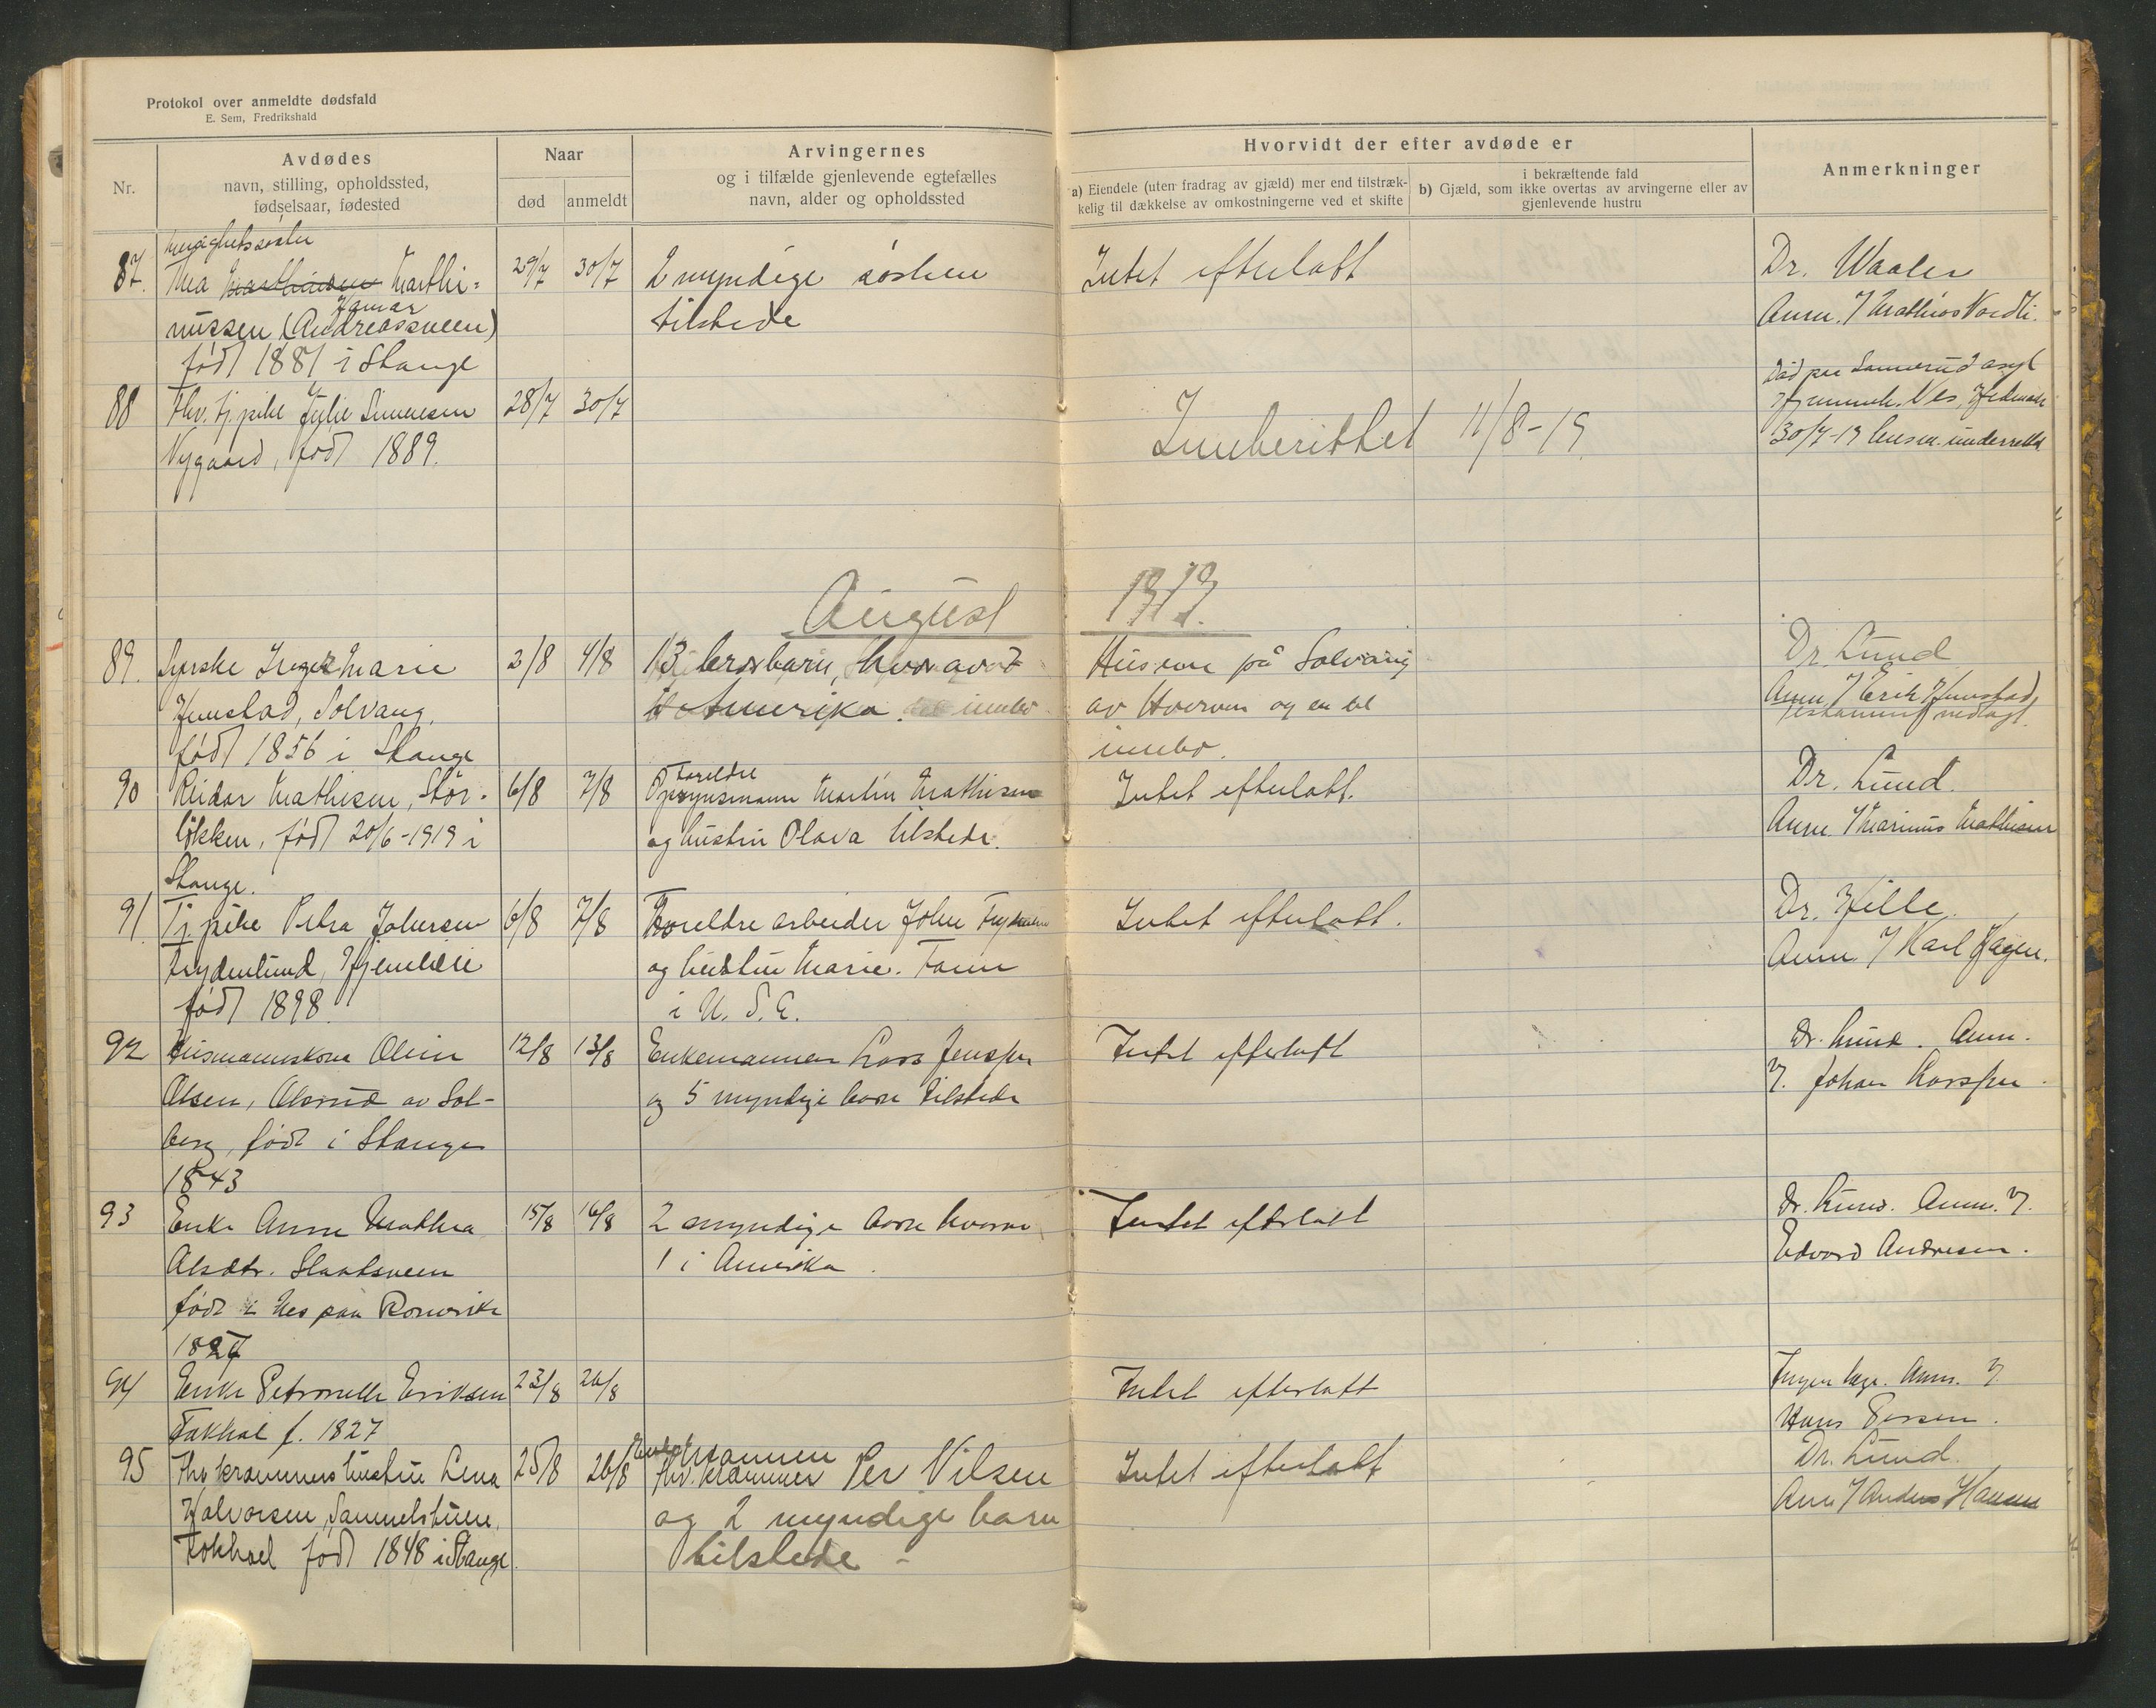 Protokol over anmeldte dødsfald
E. Sem, Fredrikshald
Nr.
Avdødes
navn, stilling, opholdssted,
fødselsaar, fødested
Naar
død
anmeldt
Arvingernes
og i tilfælde gjenlevende egtefælles
navn, alder og opholdssted
Hvorvidt der efter avdøde er
a) Eiendele (uten fradrag av gjæld) mer end tilstræk-
kelig til dækkelse av omkostningerne ved et skifte
i bekræftende fald
b) Gjæld, som ikke overtas av arvingerne eller av
gjenlevende hustru
Anmerkninger
87. Thea Marthinsen Marthi- 29/7 30/7 2 myndige søsken Intet efterlatt Dr. Waaler
Hamar
nussen (Andreassveen) tilstede Anm. / Mathias
født 1881 i Stange
88 Fhv. tj. pike Julie Simensen 28/7 30/7
Nygaard, født 1889. Innberettet 11/8-19 30/7-19 underrettet
August 1919.
89. Syerske Inger Marie 2/8 4/8 13 brorbarn, hvorav 7 Huserne på Solvang Dr. Lund
Solvang, i Amerika. av Hverven og en del Anm / Erik
født 1856 i Stange innbo.
90 Reidar Mathisen, Stor- 6/8 7/8 Foreldre
Martin Mathisen Intet efterlatt. Dr. Lund.
løkken, født 20/6-1919 i og hustru Olava tilstede. Anm. / Marinus Mathisen
Stange.
91. Tj. pike Petra Johnsen 6/8 7/8 Foreldre arbeider John Intet efterlatt. Dr. Hille.
Frydenlund, Hjemlien og hustru Marie. Faren Anm / Karl Hagen.
født 1898 i U. S. A.
92 Husmannskone Oline 12/8 13/8 Enkemannen Lars Jenssen Intet efterlatt Dr. Lund. Anm.
Olsen, av Sol- og 5 myndige barn tilstede v. Johan Larssen.
berg, født i Stange
1843
93 Enke Anne Mathea 15/8 16/8 2 myndige barn hvorav Intet efterlatt Dr. Lund. Anm. v.
Olsdtr. 1 i Amerika. Edvard Andresen.
født i Nes paa Romerike
1827
94 Enke Petronelle Eriksen 23/8 26/8 Intet efterlatt Ingen læge. Anm. v
f. 1827 Hans
95 Fhv. kræmmers hustru Lena 25/8 26/8 Enkemannen
fhv. kræmmer Per Nilsen Intet efterlatt Dr. Lund.
Halvorsen, Sammelstuen, og 2 myndige barn Anm / Anders Hansen
født 1848 i Stange. tilstede -